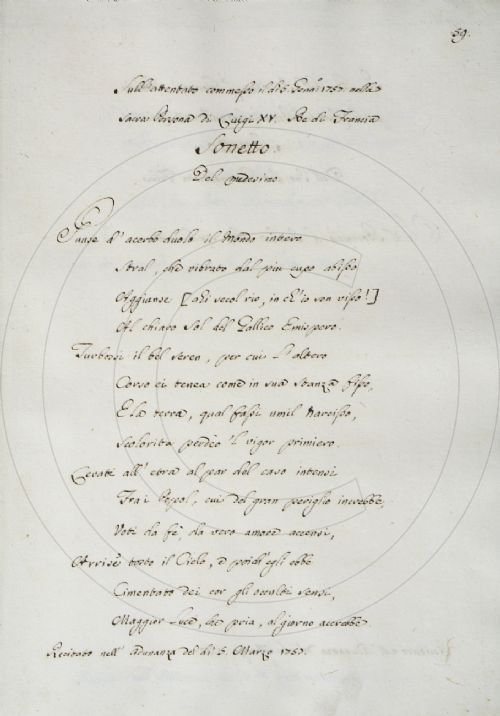 59.
Sull'attentato commesso il dì 5 Genaº 1757. nella
Sacra Persona di Luigi XV. Re di Francia
Sonetto
Del medesimo
Punse d'acerbo duolo il Mondo intero
Stral, che vibrato dal piu cupo abisso
Aggiunse [ ahi secol rio, in ch'io son visso! ]
Al chiaro Sol del Gallico Emispero.
Turbossi il bel seren, per cui l'altero
Corso ei tenea come in sua stanza fisso,
E la terra, qual fassi umil Narcisso,
Scolorita perdeo 'l vigor primiero.
Levati all' etra al par del caso intensi
Fra i Popol, cui del gran periglio increbbe,
Voti da fe', da vero amore accensi,
Arrise tosto il Cielo, e poich'egli ebbe
Cimentato dei cor gli occulti sensi,
Maggior luce, che pria, al giorno accrebbe.
Recitato nell' adunanza del dì 5. Marzo 1757.